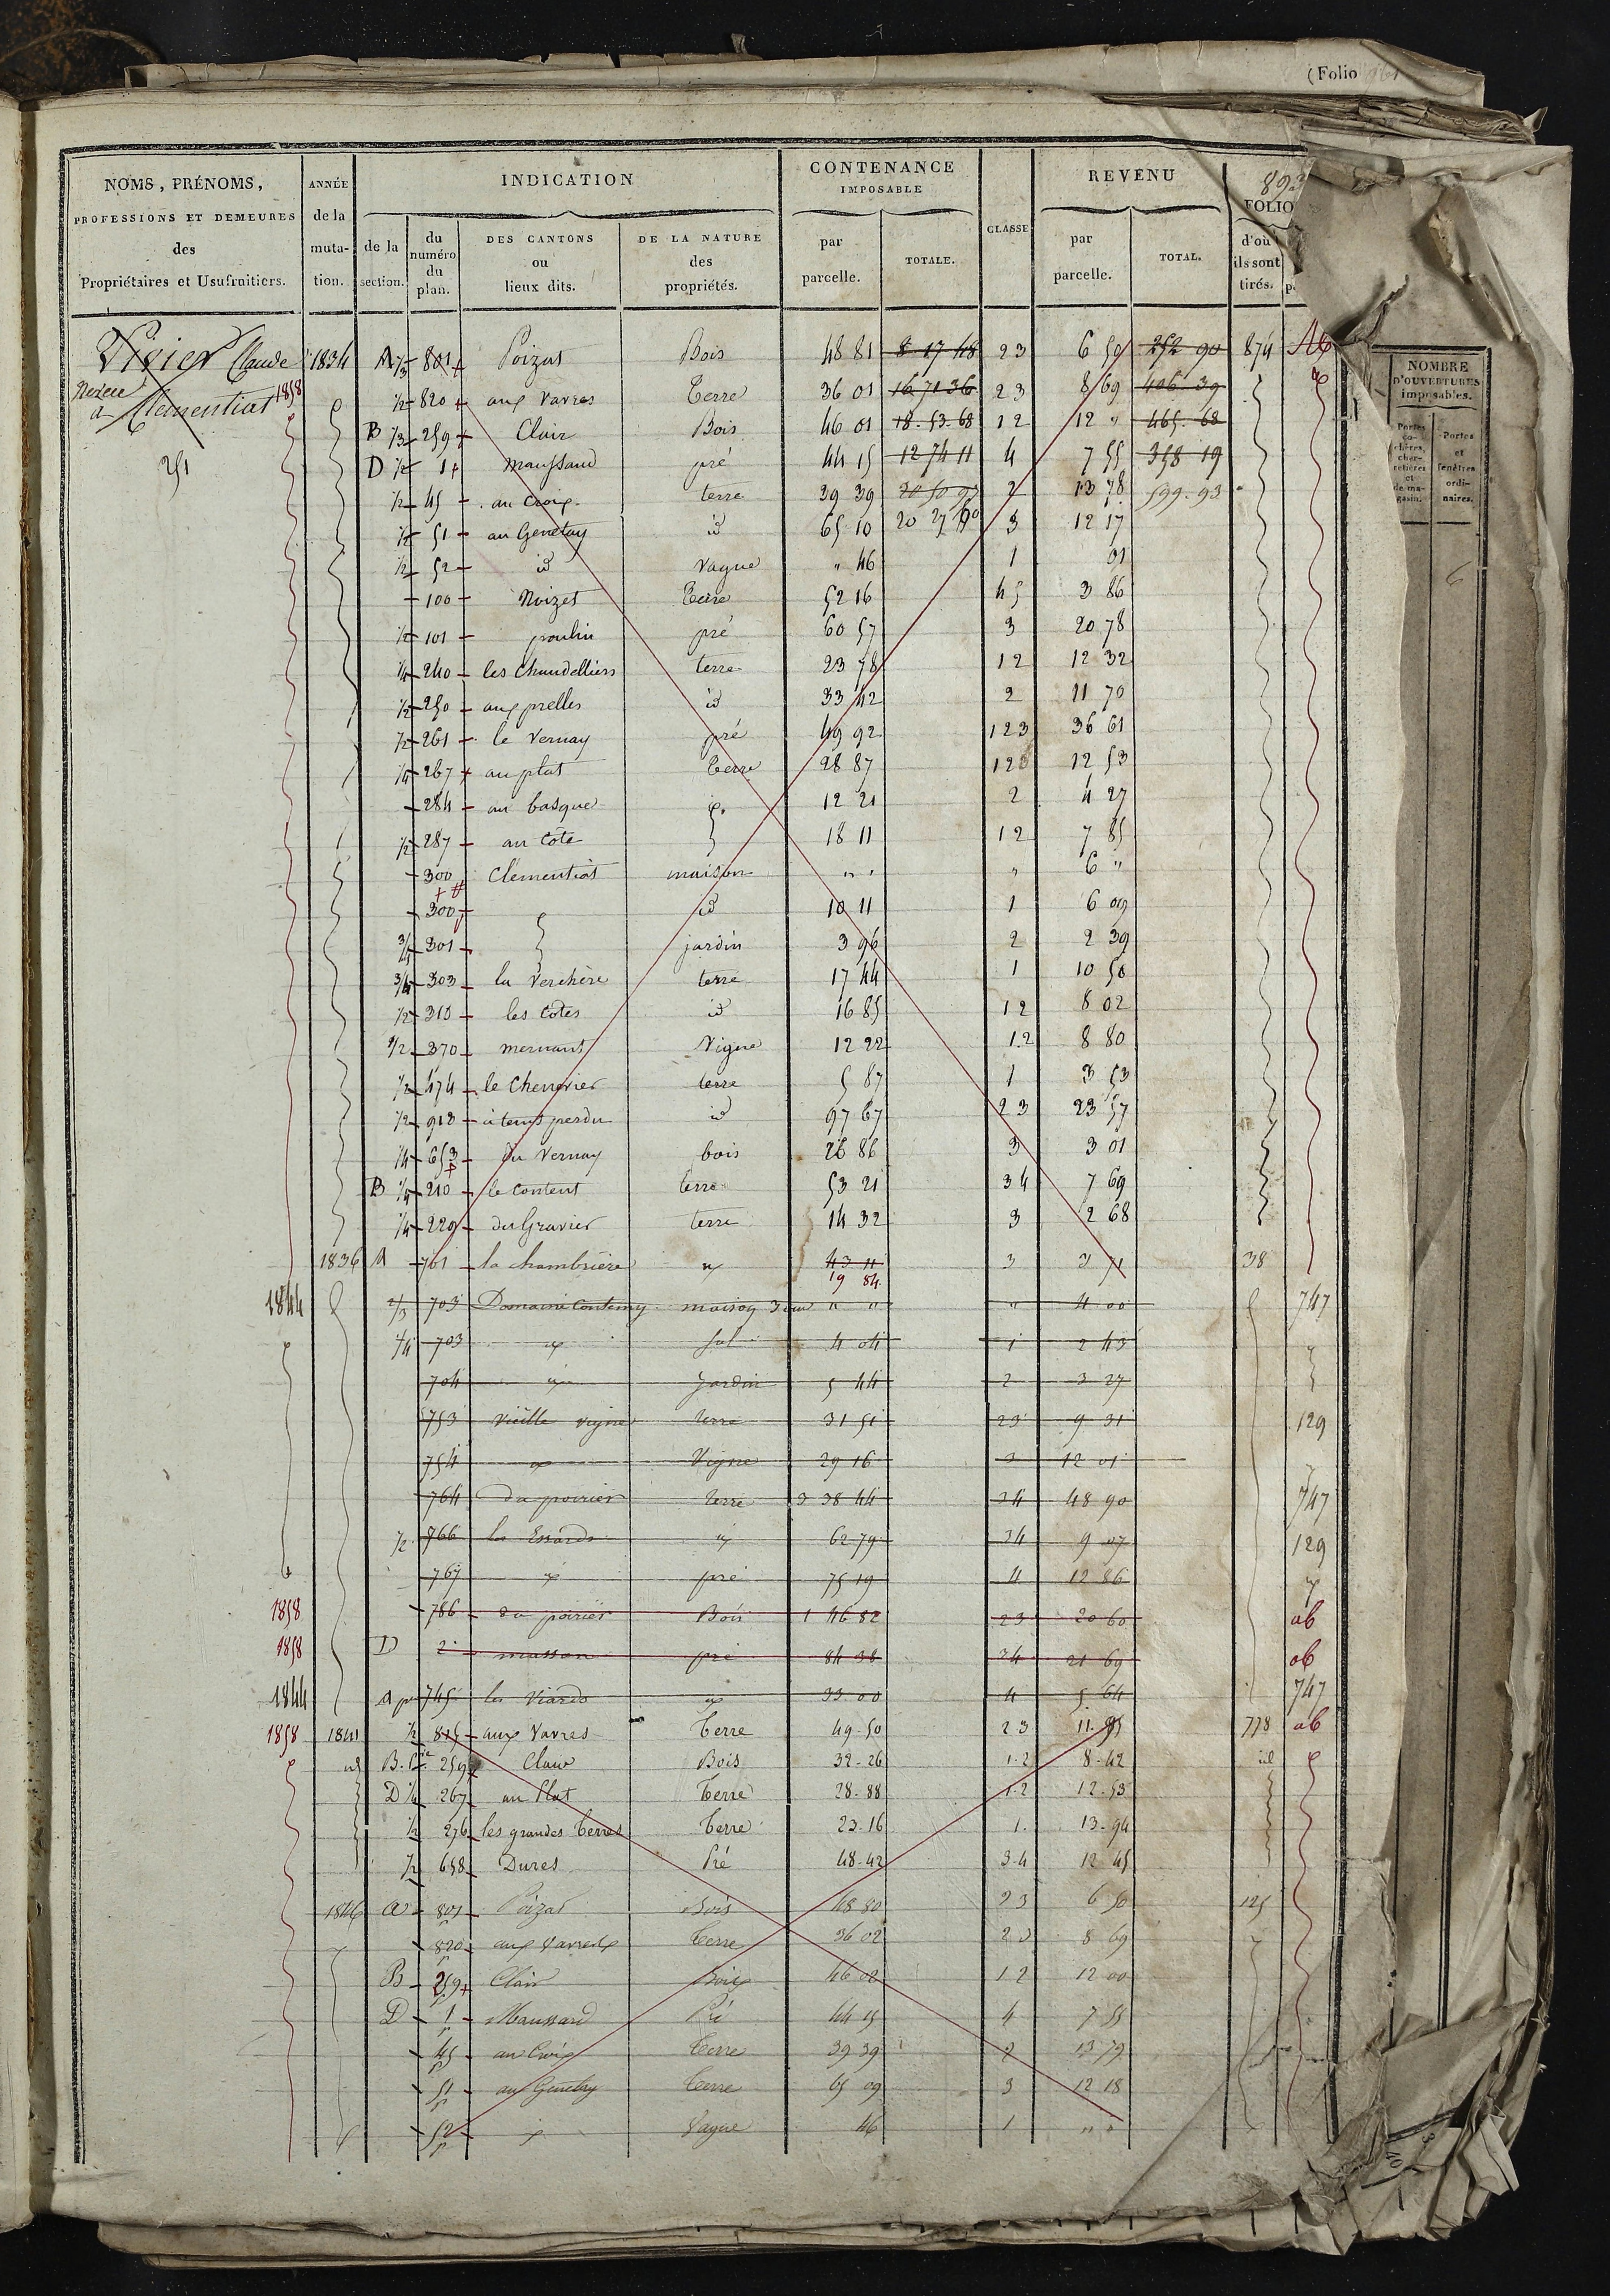 (Folio
NOMS, PRÉNOMS, PROFESSIONS ET DEMEURES des Propriétaires et Usufruitiers.
ANNÉE de la muta- tion.
INDICATION
de la section.
du numéro du plan.
DES CANTONS ou lieux dits.
DE LA NATURE des propriétés.
CONTENANCE IMPOSABLE
par parcelle.
TOTALE.
CLASSE
REVENU
par parcelle.
TOTAL.
FOLIO
d'où ils sont tirés.
NOMBRE D'OUVERTURES imposables.
Portes co- chères, char- retières et de ma- gasin.
Portes et fenêtres ordi- naires.
Claude 1834 A 1/3 801 Poizat Bois 48 81 8 17 48 23 6 50 252 90 874
1858 1/2 820 aux Vavres Terre 36 01 16 71 36 23 8 69 406 39
a Clementiat
B 1/3 259 Clair Bois 46 01 18.53.68 12 12 " 465.68
251 D 1/2 1 Maussand pré 44 15 12 74 11 4 7 55 358 19
1/2 45 au Croix terre 39 39 2 13 78 599.93
1/2 51 au Genetay id 65 10 3 12 17
1/2 52 id Vague " 46 1 01
100 Noizet Terre 52 16 45 3 86
1/2 101 poulin pré 60 57 3 20 78
1/4 240 les Chandelliers terre 23 78 12 12 32
1/2 250 aux prelles id 33 42 2 11 70
1/2 261 le Vernay pré 49 92 123 36 61
267 au plat Terre 28 87 123 12 53
284 au basque 12 21 2 4 27
1/2 287 au Cote 18 11 12 7 85
300 Clementiat maison " " " 6 "
300 id 10 11 1 6 09
3/4 301 jardin 3 96 2 2 39
3/4 303 la Verchère terre 17 44 1 10 50
1/2 310 les Cotes id 16 85 12 8 02
1/2 370 mernant Vigne 12 22 1.2 8 80
1/2 474 le Chenevier terre 5 87 1 3 53
1/2 918 à tems perdu id 97 67 23 23 57
1/4 653 Du Vernay bois 26 86 3 3 01
B 1/4 210 le Content terre 53 21 34 7 69
1/4 229 du Gravier terre 14 32 3 2 68
1836 A 761 la chambrière 43 11 3 3 71 38
19 84
1844 2/3 703 Domaine Contemy maison " " " 4 00 747
1/4 703 sol 4 04 1 2 43
704 Jardin 5 44 2 3 27
753 Vieille vigne terre 31 51 23 9 31 129
754 Vigne 29 16 3 12 01
764 Du poirier terre 3 38 44 34 48 90 747
1/2 766 les Essards 62 79 34 9 07 129
767 pré 75 19 4 12 86
1858 786 du poirier Bois 1 46 82 23 20 60 ab
1858 D 2 masson pré 84 38 34 21 69 ab
1844 A 745 les Viards 33 00 4 5 64 747
1858 1841 1/2 815 aux Vavres Terre 49.50 23 11.95 778 ab
B. 259 Clair Bois 32-26 1-2 8-42 id
D 267 au Plat Terre 28-88 1-2 12-53
1/2 276 les grandes Terres Terre 23-16 1. 13-94
1/2 658 Dures Pré 48-42 3-4 12 45
1846 A 801 Poizat Bois 48 80 23 6 50 125
820 aux Vavres Terre 36 02 23 8 69
B 259 Clair Bois 46 02 12 12 00
D 1 Maussard Pré 44 15 4 7 55
45 au Croix Terre 39 39 2 13 79
51 au Genetay Terre 65 09 3 12 18
52 Vague 46 1 " "